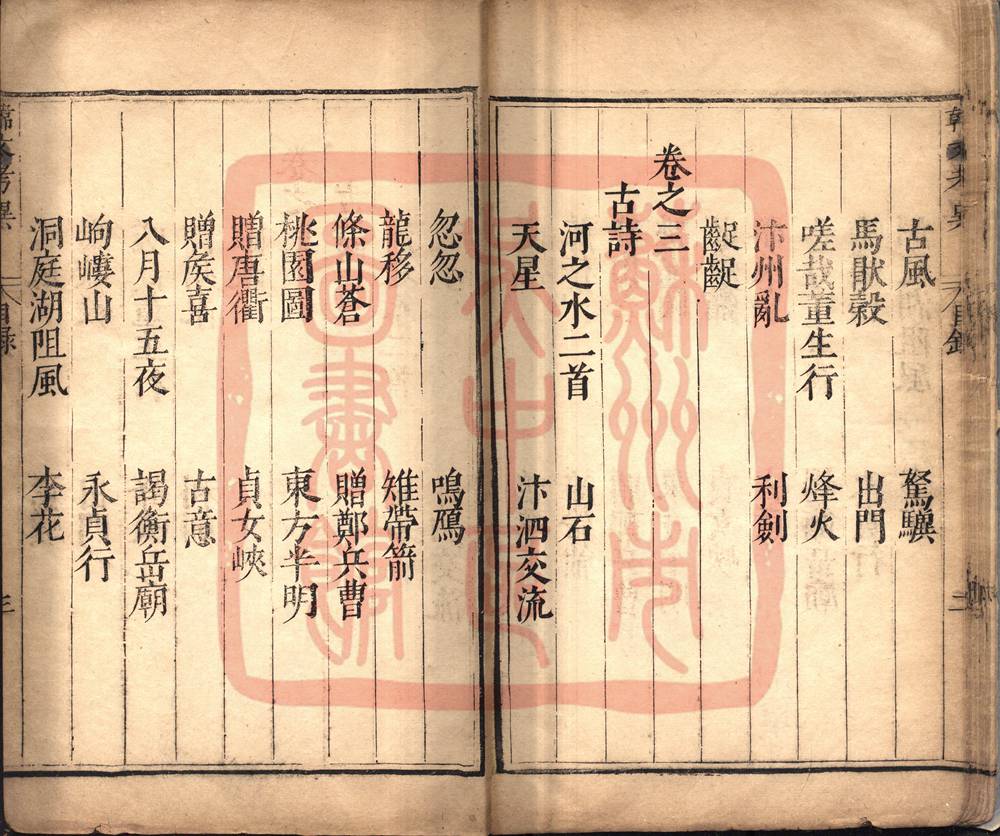 古風 駑驥
馬猒穀 出門
嗟哉董生行 烽火
汴州亂 利劍
齪齪
卷之三
古詩
河之水二首 山石
天星 汴泗交流
忽忽 鳴鴈
龍移 雉帶箭
條山蒼 贈鄭兵曹
桃園圖 東方半明
贈唐衢 貞女峽
贈矦喜 古意
八月十五夜 謁衡岳廟
岣嶁山 永貞行
洞庭湖阻風 李花
韓文考異 目録 三